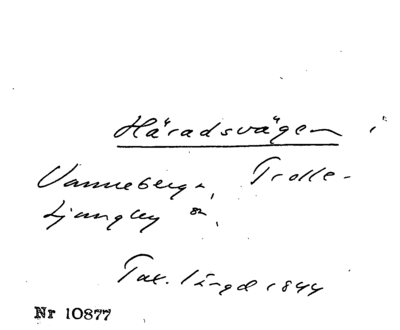 Häradsvägen i
Vanneberga, Trolle-
Ljungby sn.
Tax. längd 1844
Nr 10877